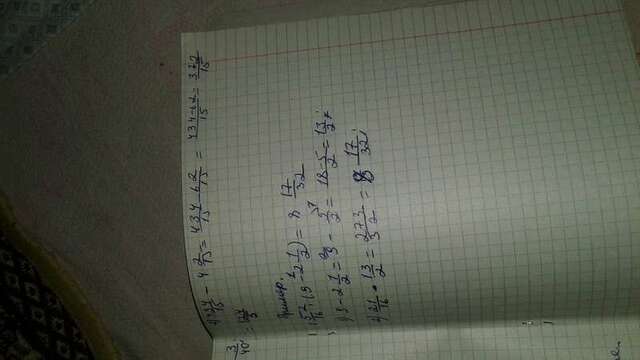 434/15 - 4 2/15 = 434/15 - 62/15 = 434-62/15 = 372/15
3/40
= 124/5
Пример.
(9 - 2 1/2) = 8 17/32
1) 9 - 2 1/2 = 9 - 5/2 = 18-5/2 = 13/2;
2) 21/16 · 13/2 = 273/32 = 8 17/32;